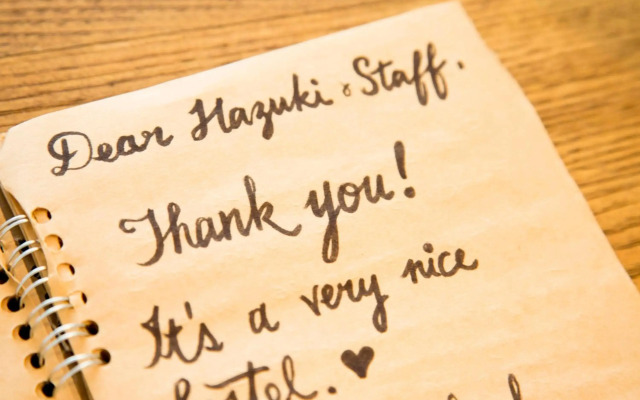 Dear Hazuki & Staff.
Thank you!
It's a very nice
hostel. ♥